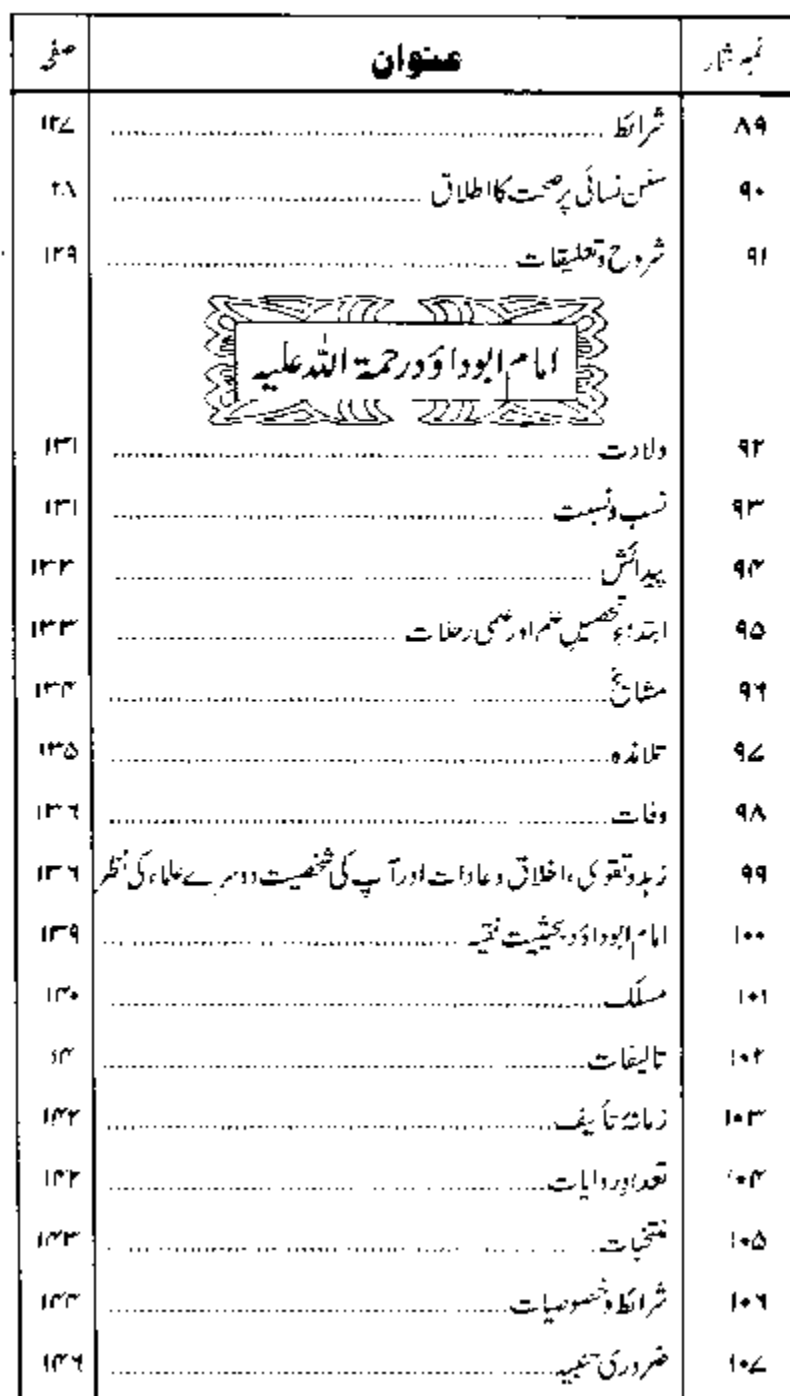 نمبر شمار عنوان صفحہ
۸۹ شرائط ۱۲۷
۹۰ سنن نسائی پر صحت کا اطلاق ۲۸
۹۱ شروح و تعلیقات ۱۲۹
امام ابوداؤد رحمۃ اللہ علیہ
۹۲ ولادت ۱۳۱
۹۳ نسب و نسبت ۱۳۱
۹۴ پیدائش
۹۵ ابتداء تحصیل علم اور علمی رحلات ۱۳۳
۹۶ مشائخ ۱۳۴
۹۷ تلامذہ ۱۳۵
۹۸ وفات ۱۳۶
۹۹ زہد و تقویٰ، اخلاق و عادات اور آپ کی شخصیت دوسرے علماء کی نظر ۱۳۶
۱۰۰ امام ابوداؤد بحیثیت فقیہ ۱۳۹
۱۰۱ مسلک ۱۴۰
۱۰۲ تالیفات
۱۰۳ زمانۂ تألیف ۱۴۲
۱۰۴ تعداد روایات ۱۴۲
۱۰۵ منتخبات ۱۴۳
۱۰۶ شرائط و خصوصیات ۱۴۴
۱۰۷ ضروری تنبیہ ۱۴۶